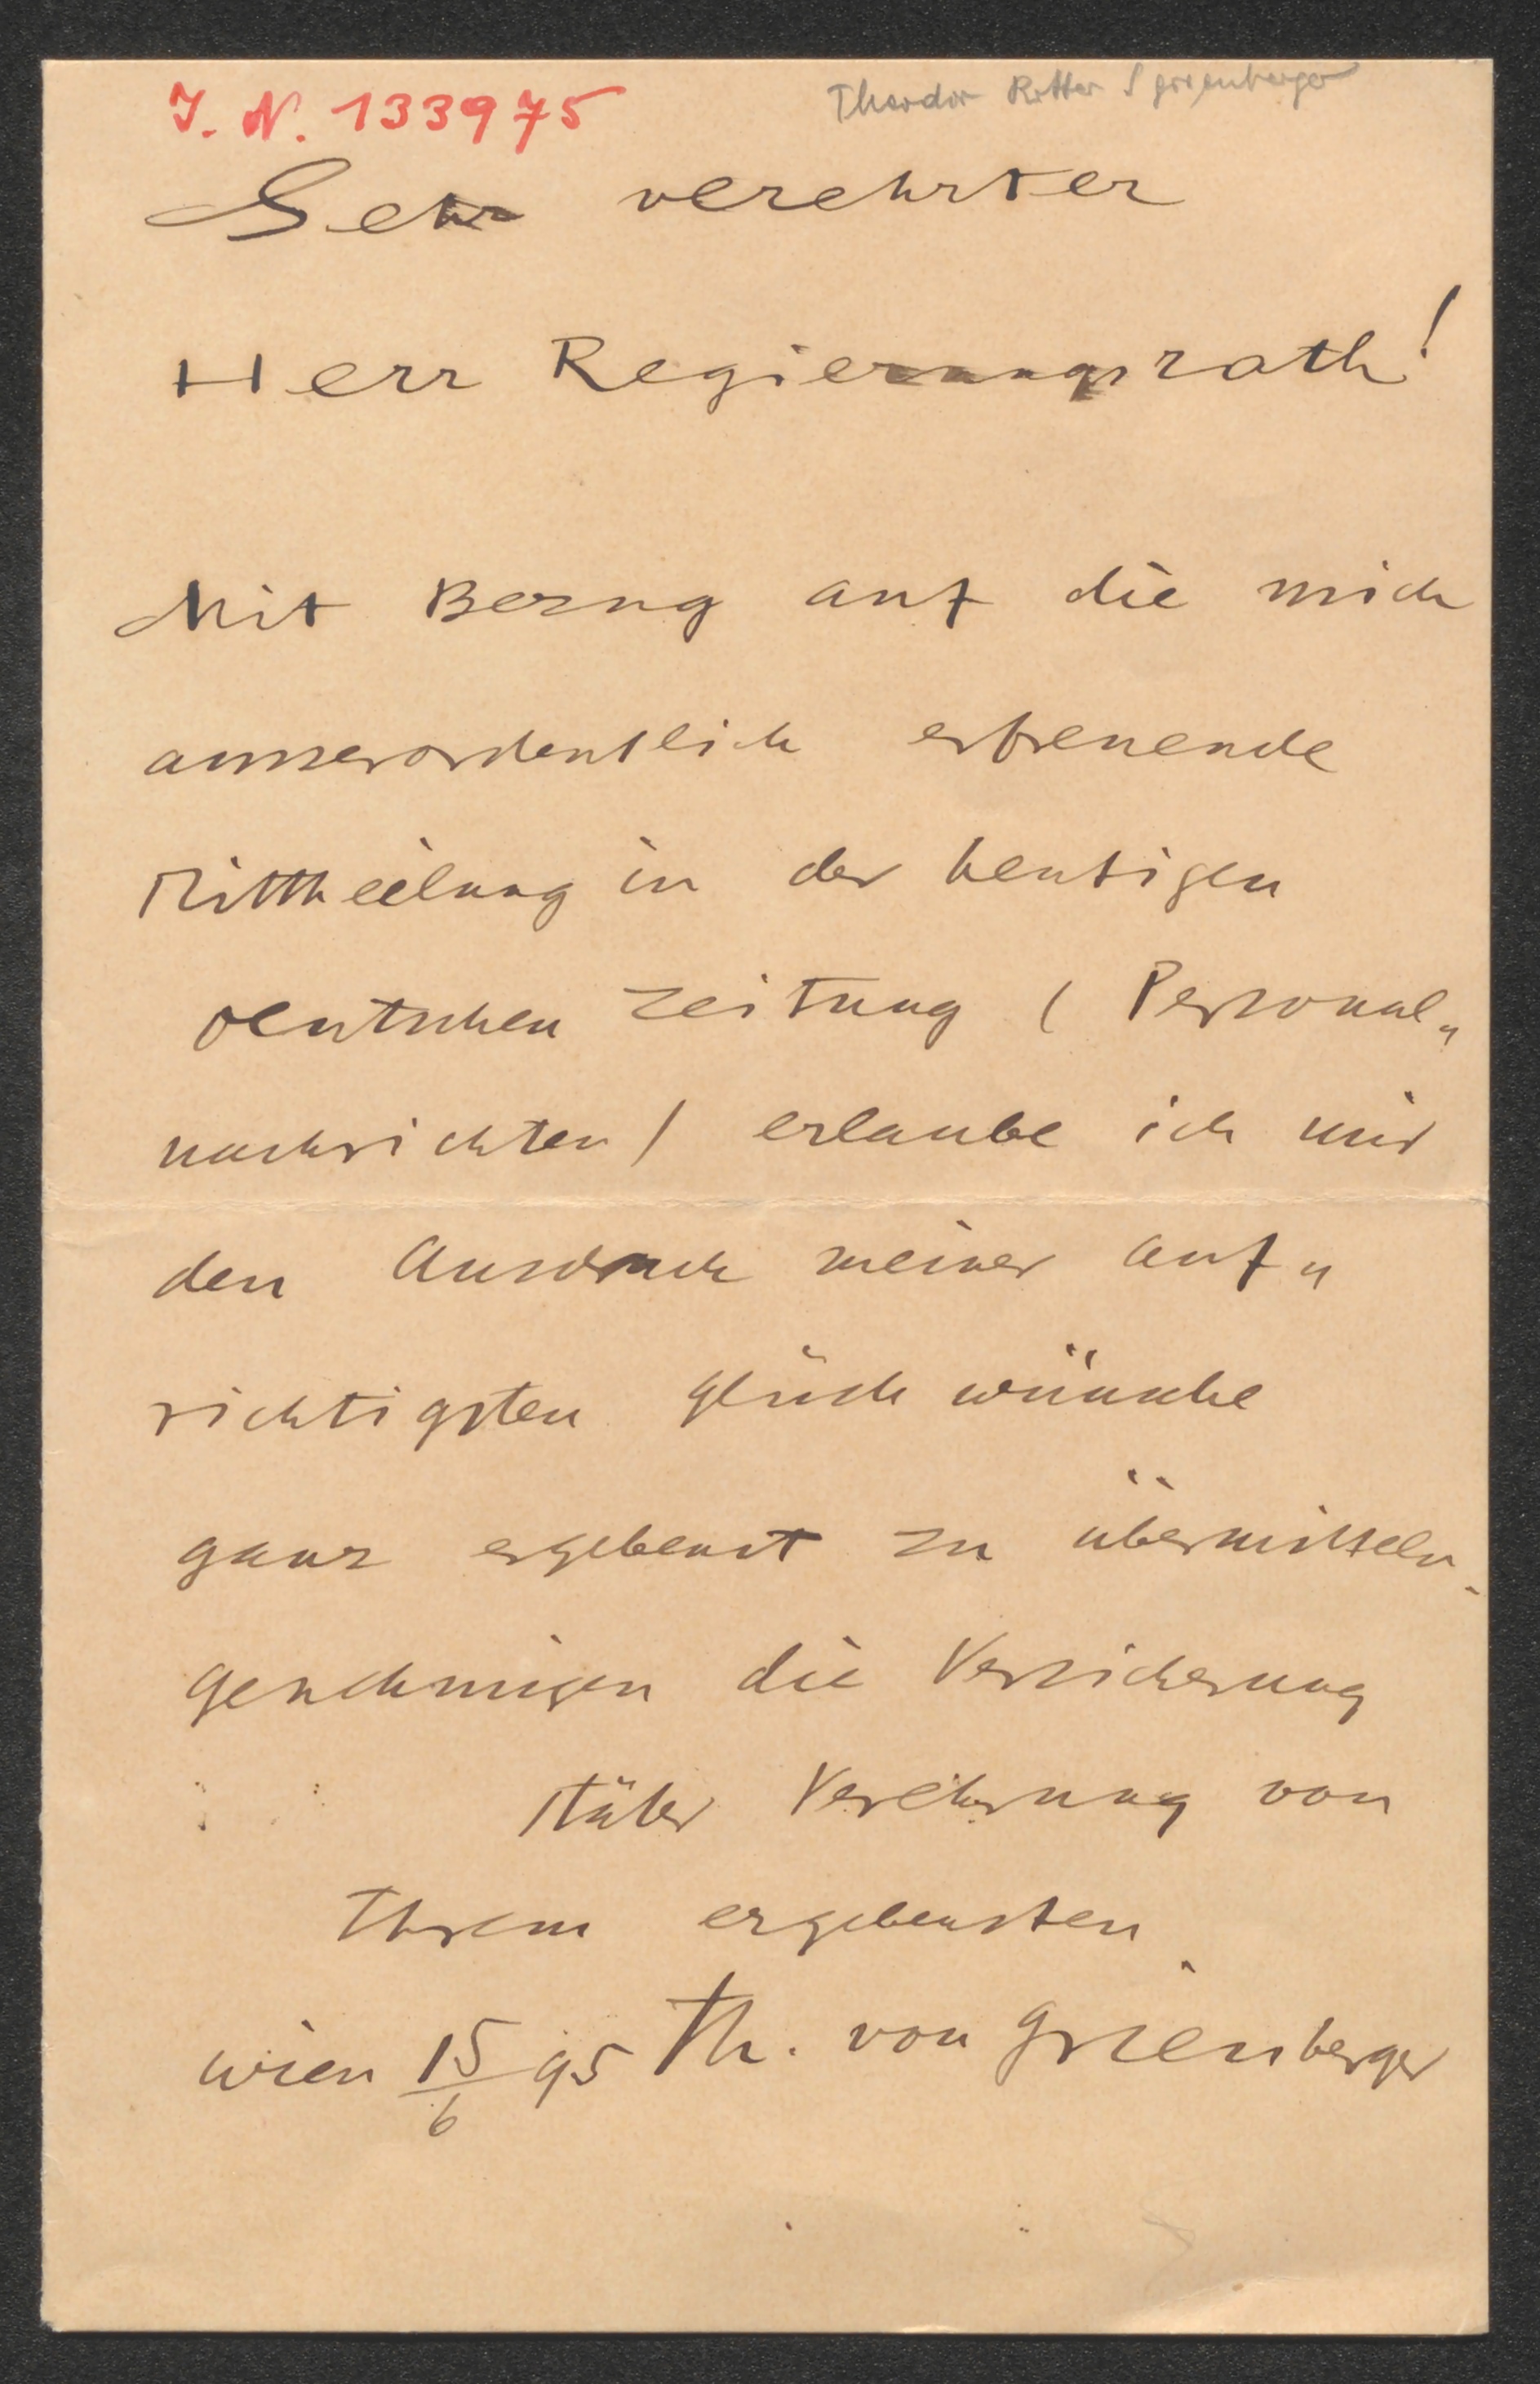 I. N. 133975
Theodor Ritter v Grienberger
Sehr verehrter
Herr Regierungsrath!
Mit Bezug auf die mich
ausserordentlich erfreuende
Mittheilung in der heutigen
Deutschen Zeitung (Personal„
nachrichten) erlaube ich mir
den Ausdruck meiner auf„
richtigsten Glückwünsche
ganz ergebenst zu übermitteln.
Genehmigen die Versicherung
stäter Verehrung von
Ihrem ergebensten
Wien 15/6 95 Th. von Grienberger